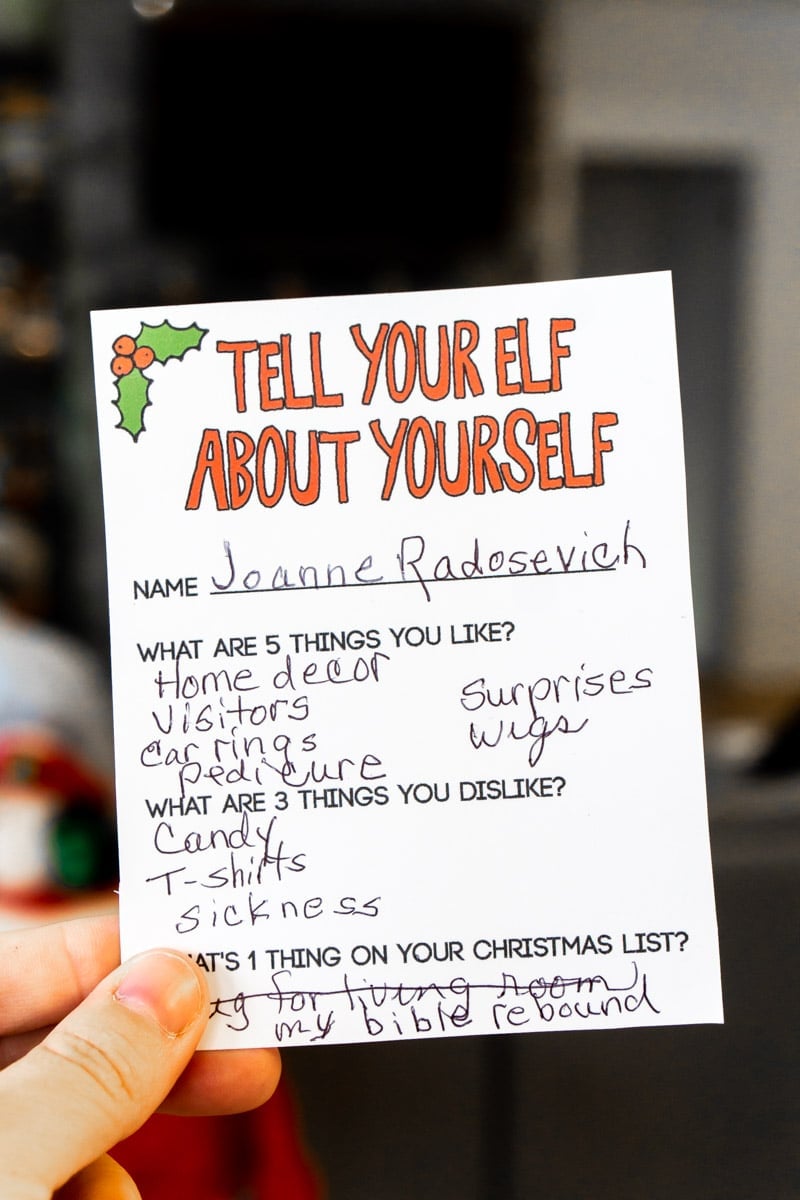 TELL YOUR ELF
ABOUT YOURSELF
NAME Joanne Radosevich
WHAT ARE 5 THINGS YOU LIKE?
Home decor
Visitors
Ear rings
pedicure
Surprises
wigs
WHAT ARE 3 THINGS YOU DISLIKE?
Candy
T-shirts
sickness
AT'S 1 THING ON YOUR CHRISTMAS LIST?
for living room
my bible rebound